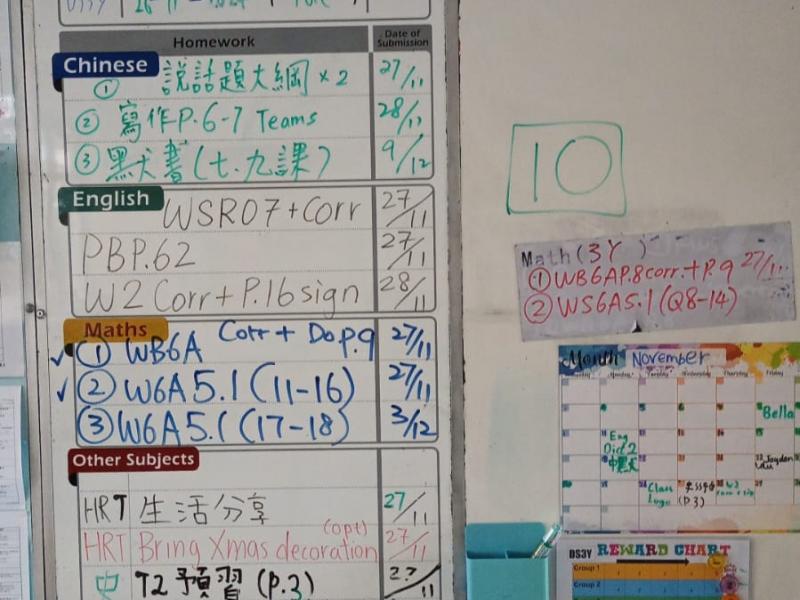 Homework Date of Submission
Chinese
① 說話題大綱 ×2 27/11
② 寫作P.6-7 Teams 28/11
③ 默书(七.九課) 9/12
English
WSR07+Corr 27/11
PBP.62 27/11
W2 Corr+P.16sign 28/11
Maths
✓① WB6A Corr + Do p.9 27/11
✓② W6A5.1(11-16) 27/11
③ W6A5.1(17-18) 3/12
Other Subjects
HRT 生活分享 27/11
(opt)
HRT Bring Xmas decoration 27/11
中 T2預習(P.3) 27/11
10
Math(3Y)
① WB6AP.8corr.+P.9 27/11
② WS6A5.1(Q8-14)
Month November
Bella
Eng
Dict 2
Class
(P.3)
DS3Y REWARD CHART
Group 1
Group 2